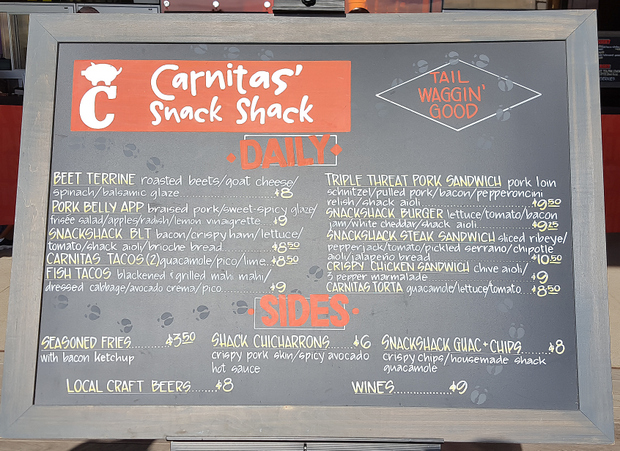 Carnitas'
Snack Shack
C
TAIL
WAGGIN'
GOOD
DAILY
BEET TERRINE roasted beets/goat cheese/
spinach/balsamic glaze $8
PORK BELLY APP braised pork/sweet-spicy glaze/
frisée salad/apples/radish/lemon vinaigrette $9
SNACKSHACK BLT bacon/crispy ham/lettuce/
tomato/shack aioli/brioche bread....$8.50
CARNITAS TACOS(2)guacamole/pico/lime..$8.50
FISH TACOS blackened & grilled mahi mahi/
dressed cabbage/avocado crema/pico....$9
TRIPLE THREAT PORK SANDWICH pork loin
schnitzel/pulled pork/bacon/pepperoncini
relish/shack aioli $9.50
SNACKSHACK BURGER lettuce/tomato/bacon
jam/white cheddar/shack aioli $9.25
SNACKSHACK STEAK SANDWICH sliced ribeye/
pepperjack/tomato/pickled serrano/chipotle
aioli/jalapeño bread $10.50
CRISPY CHICKEN SANDWICH chive aioli/
3 pepper marmalade $9
CARNITAS TORTA guacamole/lettuce/tomato....$8.50
SIDES
SEASONED FRIES......$3.50
with bacon ketchup
SHACK CHICHARRONS....$6
crispy pork skin/spicy avocado
hot sauce
SNACKSHACK GUAC + CHIPS......$8
crispy chips/housemade shack
guacamole
LOCAL CRAFT BEERS.......$8
WINES...............$9